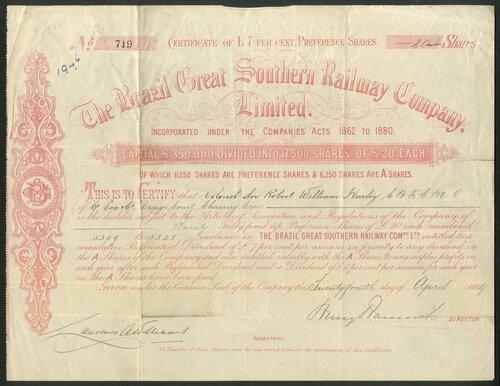 No 719 CERTIFICATE OF £7 PER CENT. PREFERENCE SHARES. 20 Shares
1946
The Brazil Great Southern Railway Company,
Limited.
INCORPORATED UNDER THE COMPANIES ACTS 1862 TO 1880.
CAPITAL £350,000 DIVIDED INTO 17,500 SHARES OF £20 EACH
OF WHICH 11,250 SHARES ARE PREFERENCE SHARES & 6,250 SHARES ARE A SHARES.
THIS IS TO CERTIFY that Colonel Sir Robert William Harley C.B. K.C.M.G.
of Craig Court Charing
is the holder subject to the Articles of Association and Regulations of the Company of
Twenty Fully paid up Preference Shares of £20 each numbered
5309 to 5328 inclusive in THE BRAZIL GREAT SOUTHERN RAILWAY COMPY. LTD. entitled to a
cumulative Preferential Dividend of £7 per cent per annum in priority to any dividend on
the A Shares of the Company and also entitled rateably with the A Shares to any surplus profits in
each year after such Preferential Dividend and a Dividend of £7 per cent per annum for such year
on the A Shares have been paid.
Given under the Common Seal of the Company this Twenty fourth day of April 1889
DIRECTOR.
Laurence A Williams
SECRETARY.
No Transfer of these Shares can be registered without the production of this Certificate.